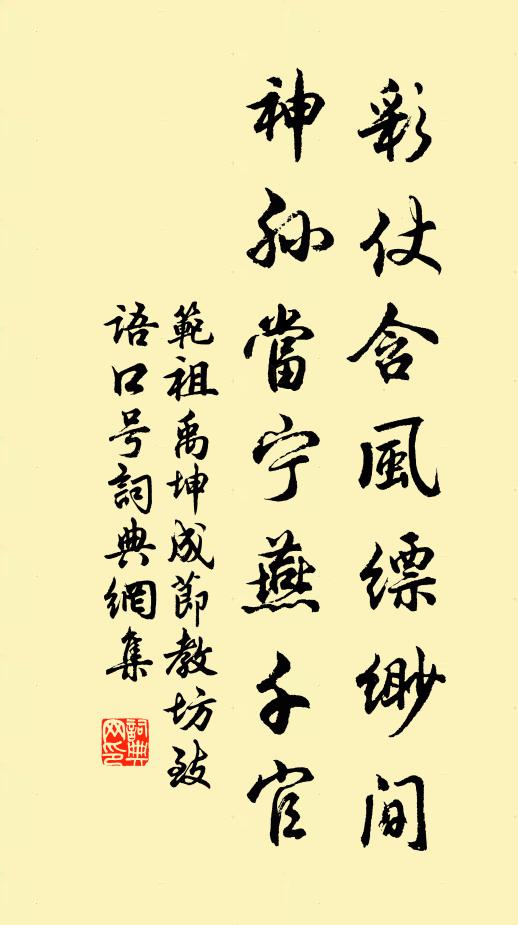 彩仗含風縹緲間
神孙當宁燕千官
範祖禹坤成節教坊致
语口号詞典網集
詞典
网印